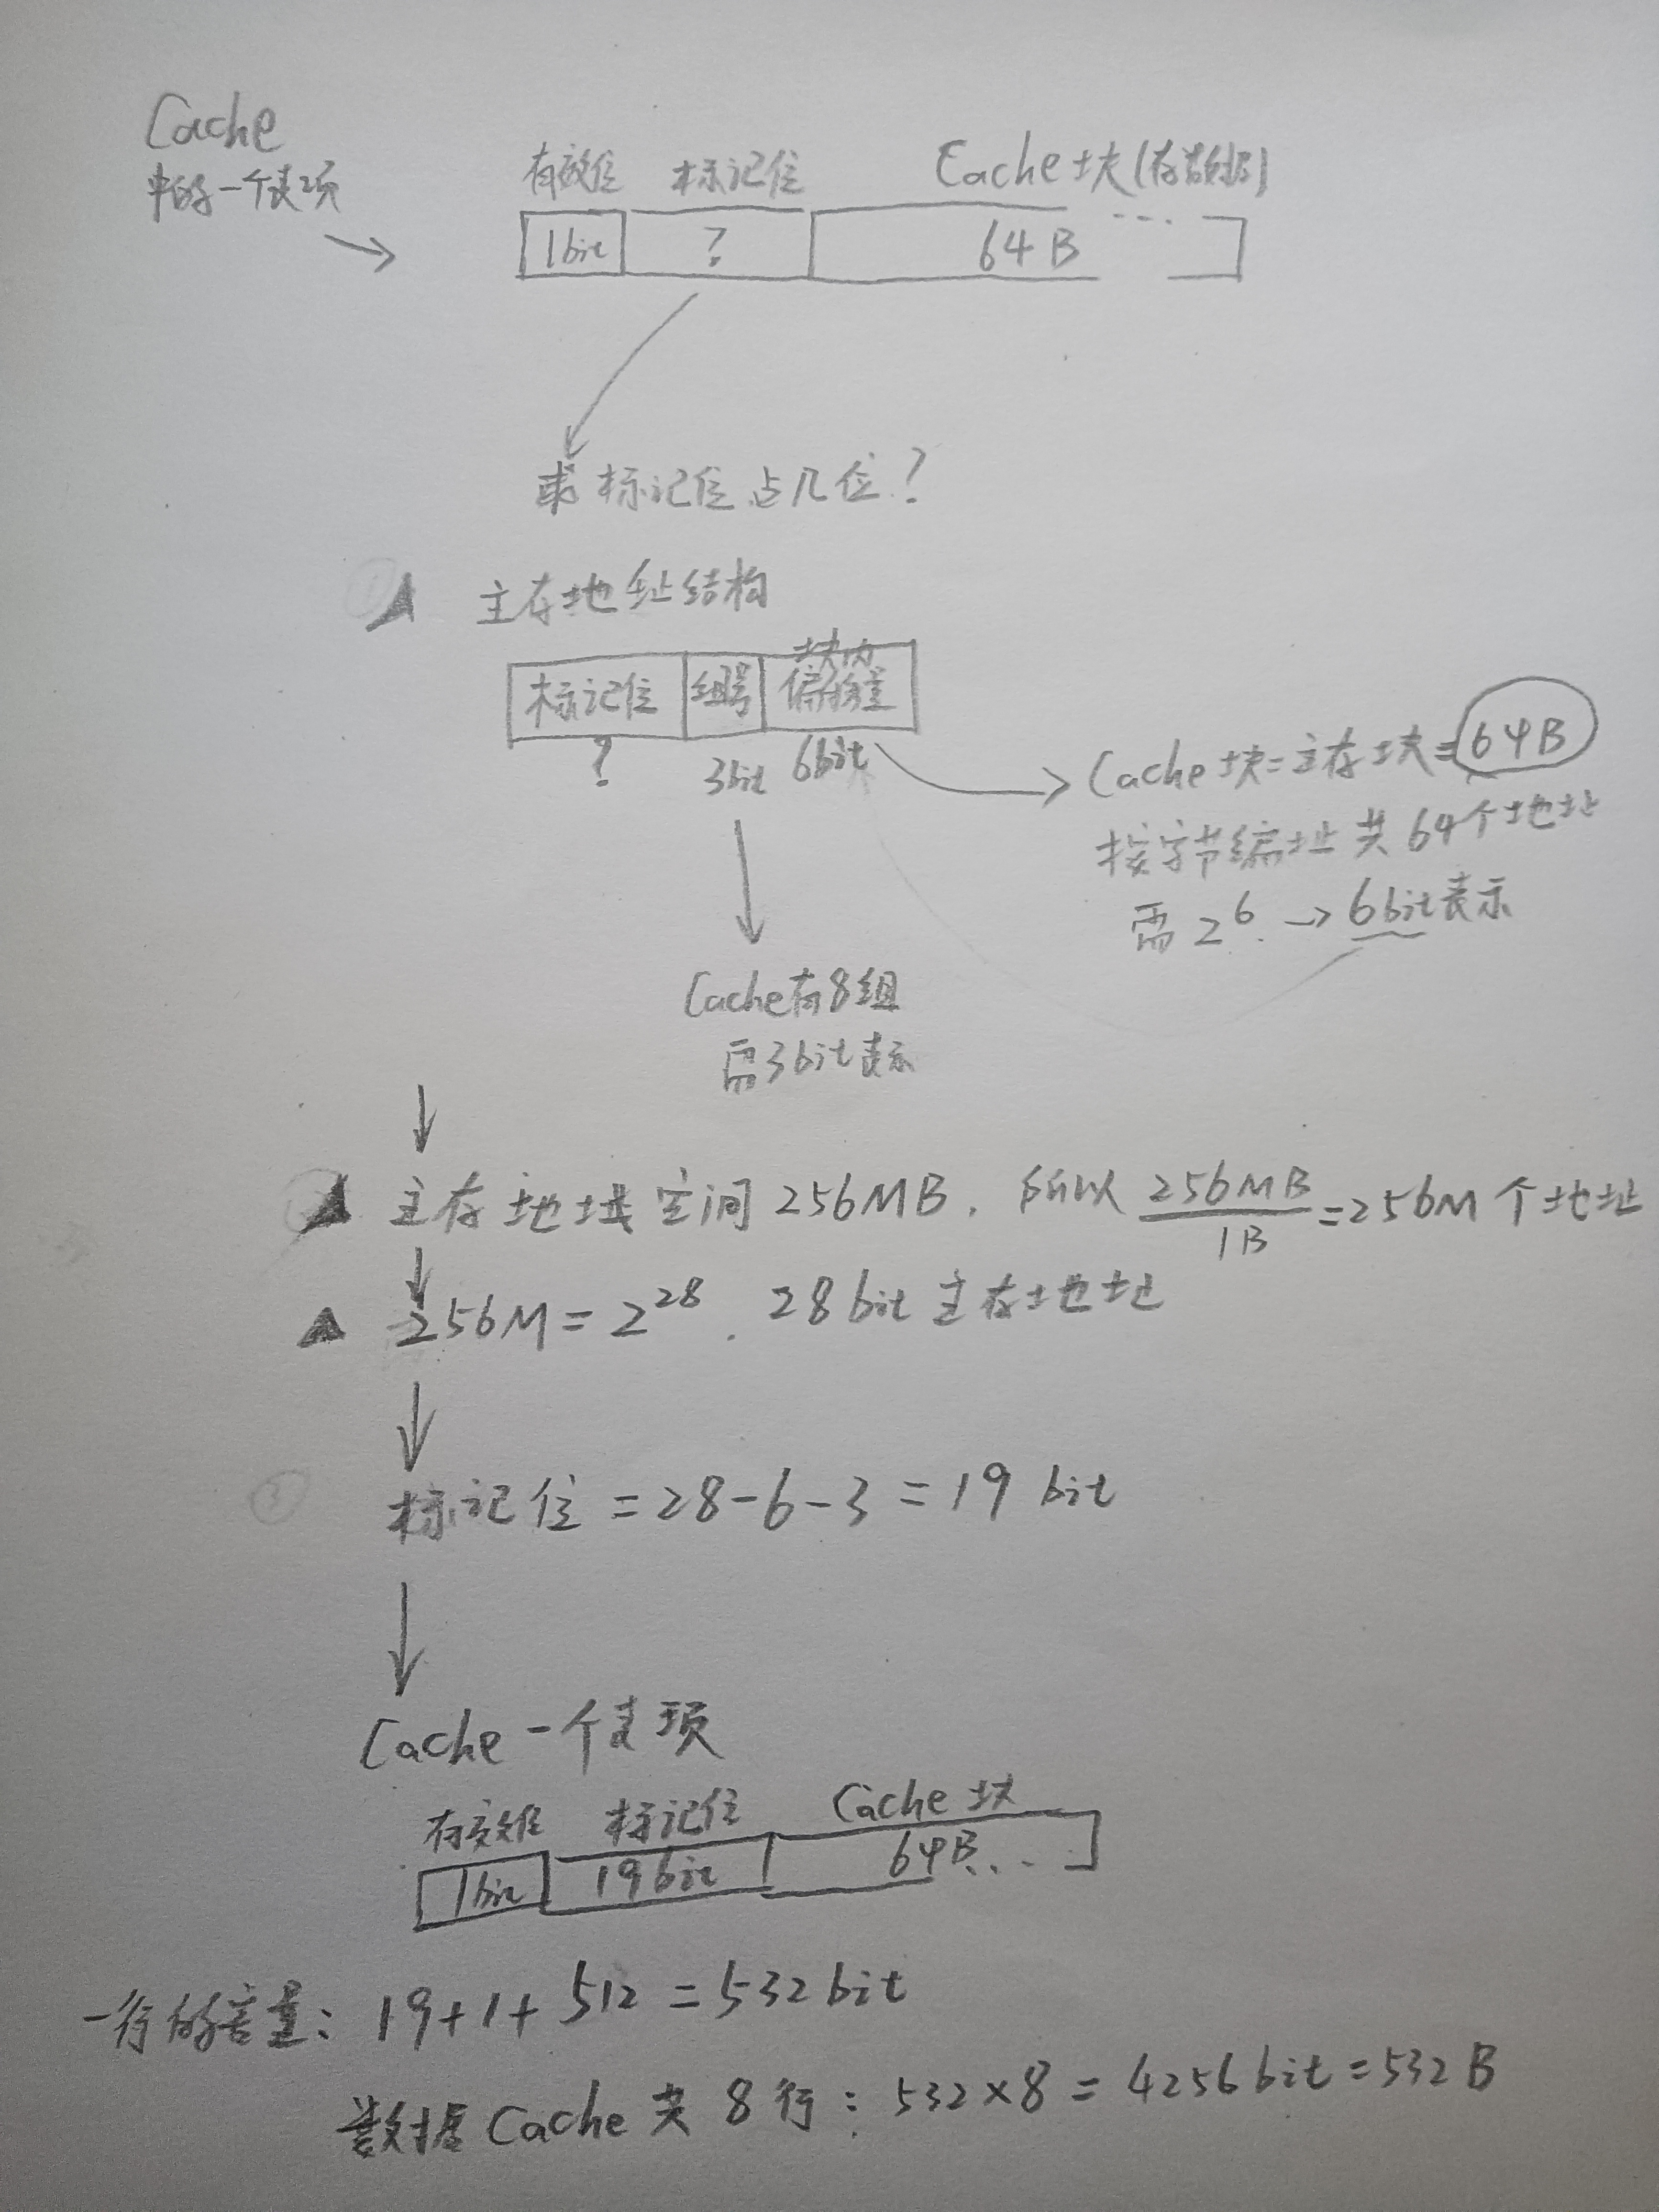 Cache
中的一个表项
有效位 标记位 Cache块(存数据)
1bit ? 64B
求标记位占几位?
主存地址结构
标记位 组号 块内偏移量
? 3bit 6bit
Cache块=主存块=64B
按字节编址 共64个地址
需 2^6 → 6bit表示
Cache有8组
需3bit表示
主存地址空间256MB. 所以 256MB/1B = 256M个地址
256M = 2^28. 28bit主存地址
③ 标记位 = 28-6-3 = 19 bit
Cache一个表项
有效位 标记位 Cache块
1bit 19bit 64B...
一行的容量: 19+1+512 = 532bit
数据Cache共8行: 532×8 = 4256bit = 532B